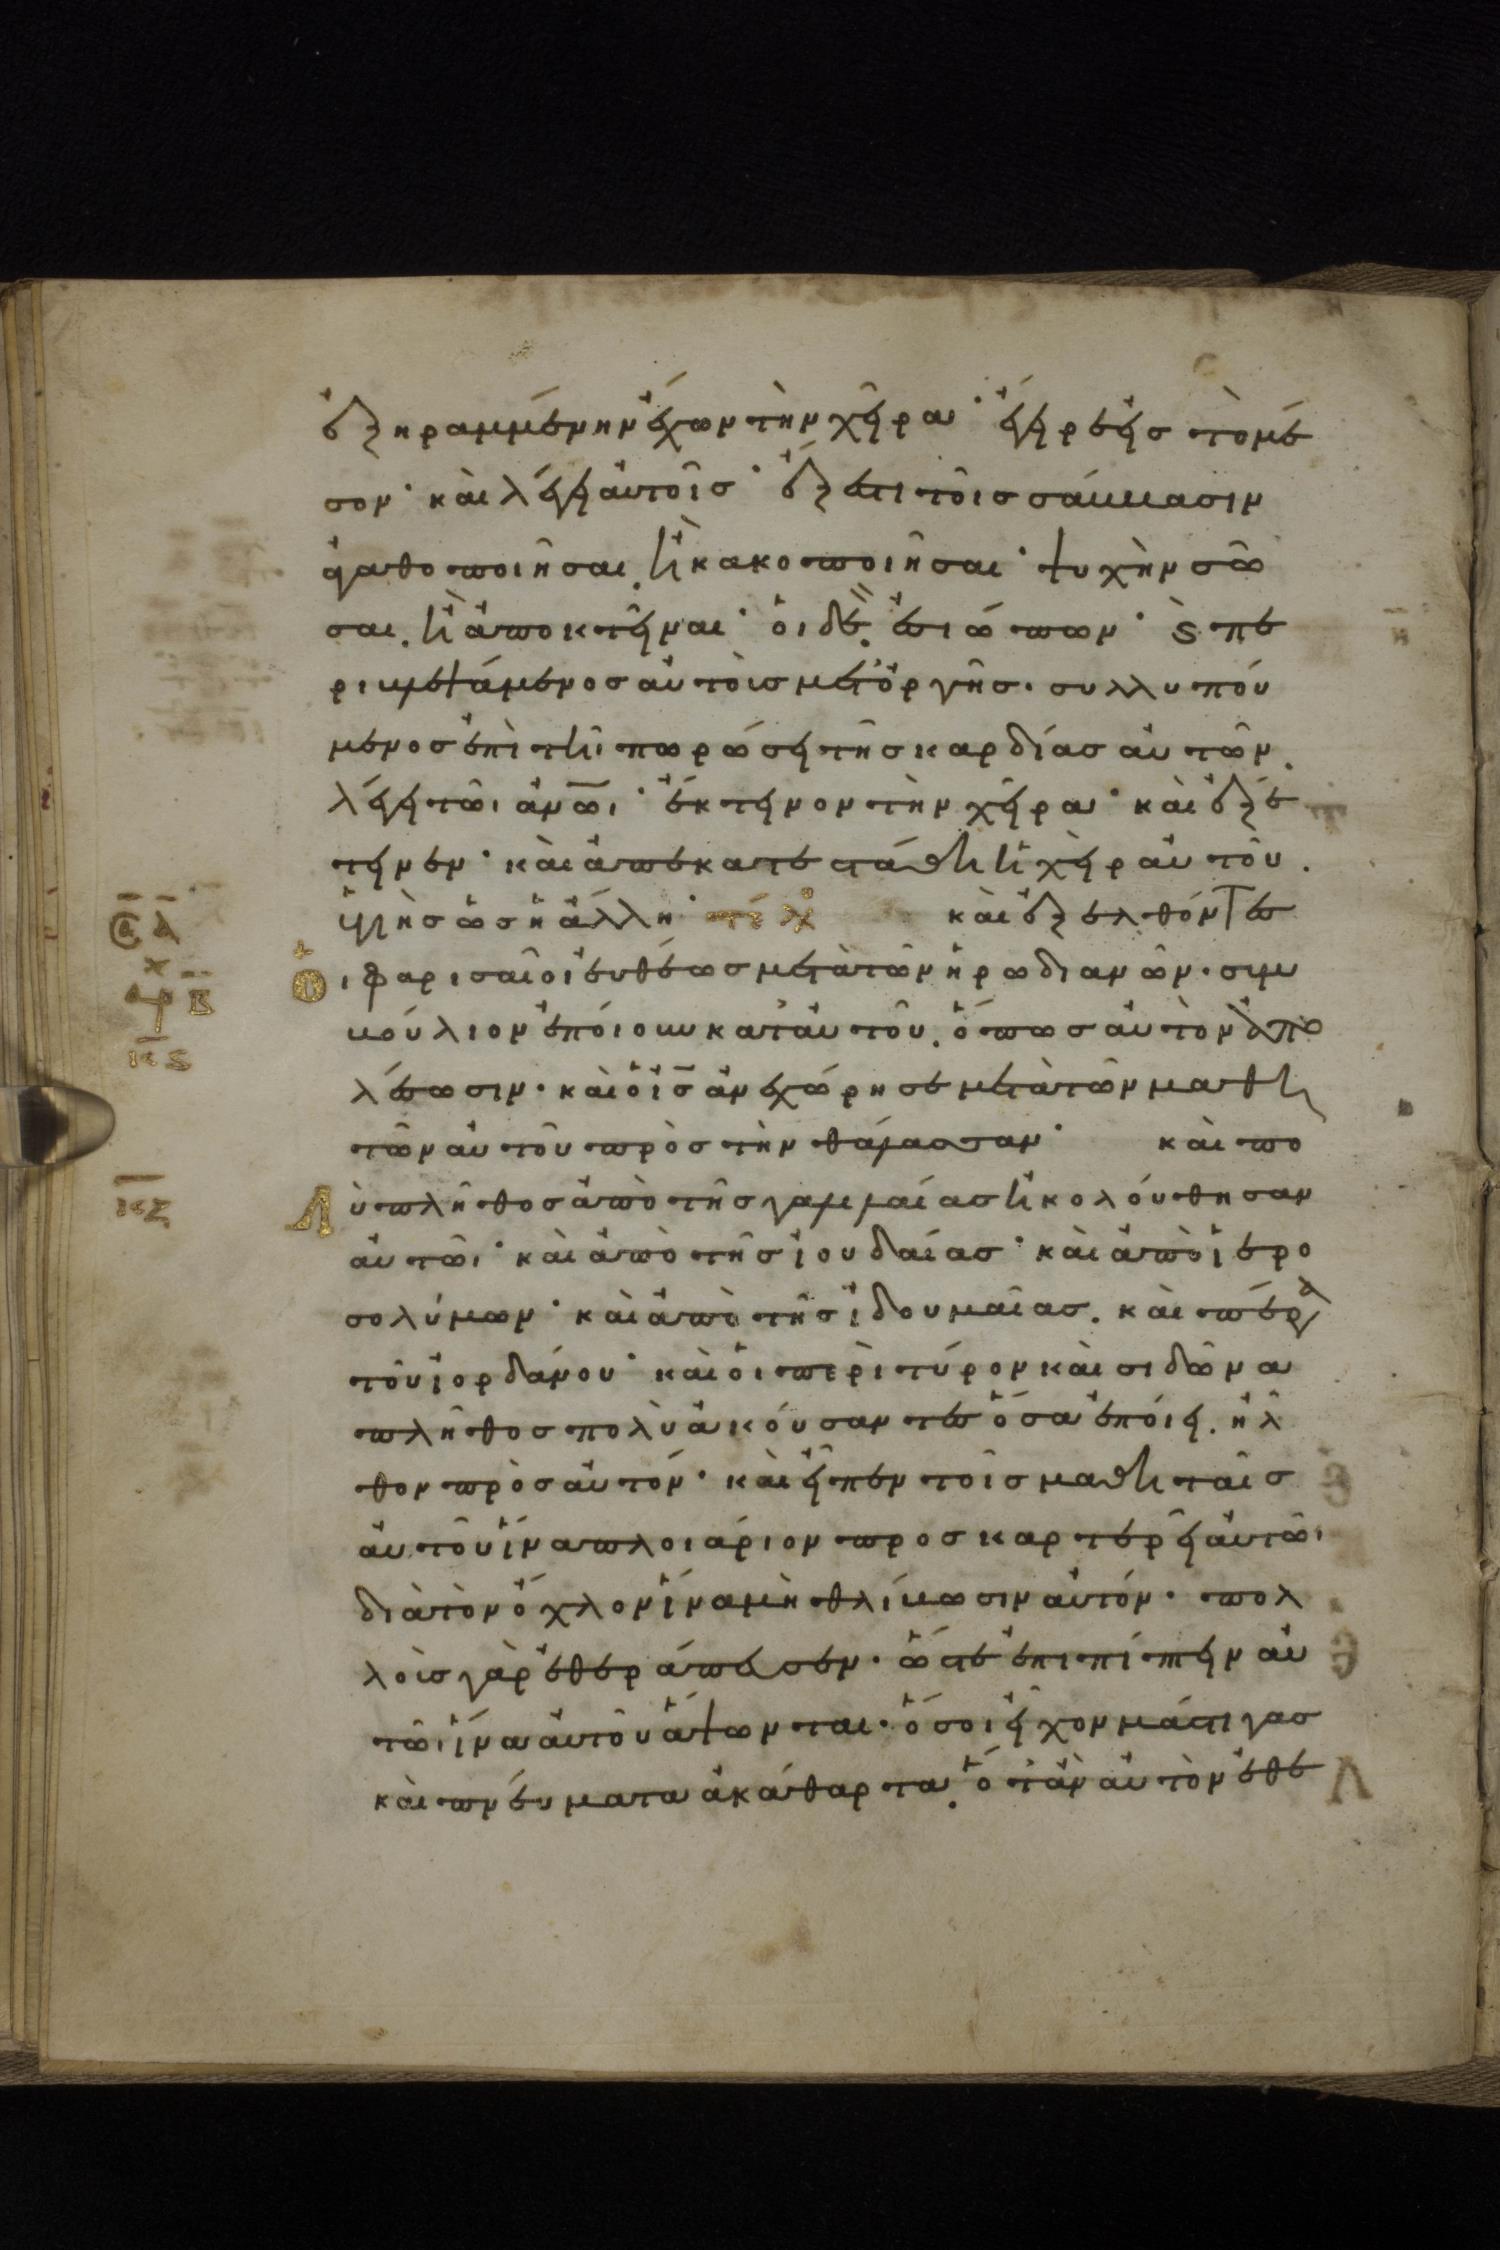 ἐξηραμμένην ἔχων τὴν χεῖρα· ἔγειρε εἰς τὸ μέ
σον· καὶ λέγει αὐτοῖς· ἔξεστι τοῖς σάββασιν
ἀγαθοποιῆσαι. ἢ κακοποιῆσαι· ψυχὴν σῶ
σαι. ἢ ἀποκτεῖναι· οἱ δὲ. ἐσιώπων· ϗ πε
ριβλεψάμενος αὐτοὺς μετ' ὀργῆς. συλλυπού
μενος ἐπὶ τῆι πωρώσει τῆς καρδίας αὐτῶν.
λέγει τῶι ἀνω̅ι· ἔκτεινον τὴν χεῖρα· καὶ ἐξέ
τεινεν· καὶ ἀποκατεστάθη ἡ χεὶρ αὐτοῦ.
ὑγιὴς ὡς ἡ ἄλλη· τέλ καὶ ἐξελθόντες
Ὁι φαρισαῖοι εὐθέως μετὰ τῶν ἡρωδιανῶν. συμ
βούλιον ἐποίουν κατ' αὐτοῦ. ὅπως αὐτὸν ἀπο
λέσωσιν. καὶ ὁ ι̅ς̅ ἀνεχώρησε μετὰ τῶν μαθη
τῶν αὐτοῦ πρὸς τὴν θάλασσαν· καὶ πο
Λὺ πλῆθος ἀπὸ τῆς γαλιλαίας ἠκολούθησαν
αὐτῶι· καὶ ἀπὸ τῆς ἰουδαίας· καὶ ἀπὸ ἱερο
σολύμων· καὶ ἀπὸ τῆς ἰδουμαίας. καὶ πέρα
τοῦ ἰορδάνου· καὶ οἱ περὶ τύρον καὶ σιδῶνα
πλῆθος πολὺ ἀκούσαντες ὅσα ἐποίει. ἦλ
θον πρὸς αὐτόν· καὶ εἶπεν τοῖς μαθηταῖς
αὐτοῦ ἵνα πλοιάριον προσκαρτερεῖ αὐτῶι
διὰ τὸν ὄχλον ἵνα μὴ θλίβωσιν αὐτόν. πολ
λοὺς γὰρ ἐθεράπευσεν. ὥστε ἐπιπίπτειν αὐ
τῶι ἵνα αὐτοῦ ἅψωνται. ὅσοι εἶχον μάστιγας
καὶ πνεύματα ἀκάθαρτα. ὅταν αὐτὸν ἐθε
κ̅ς̅
κ̅ζ̅